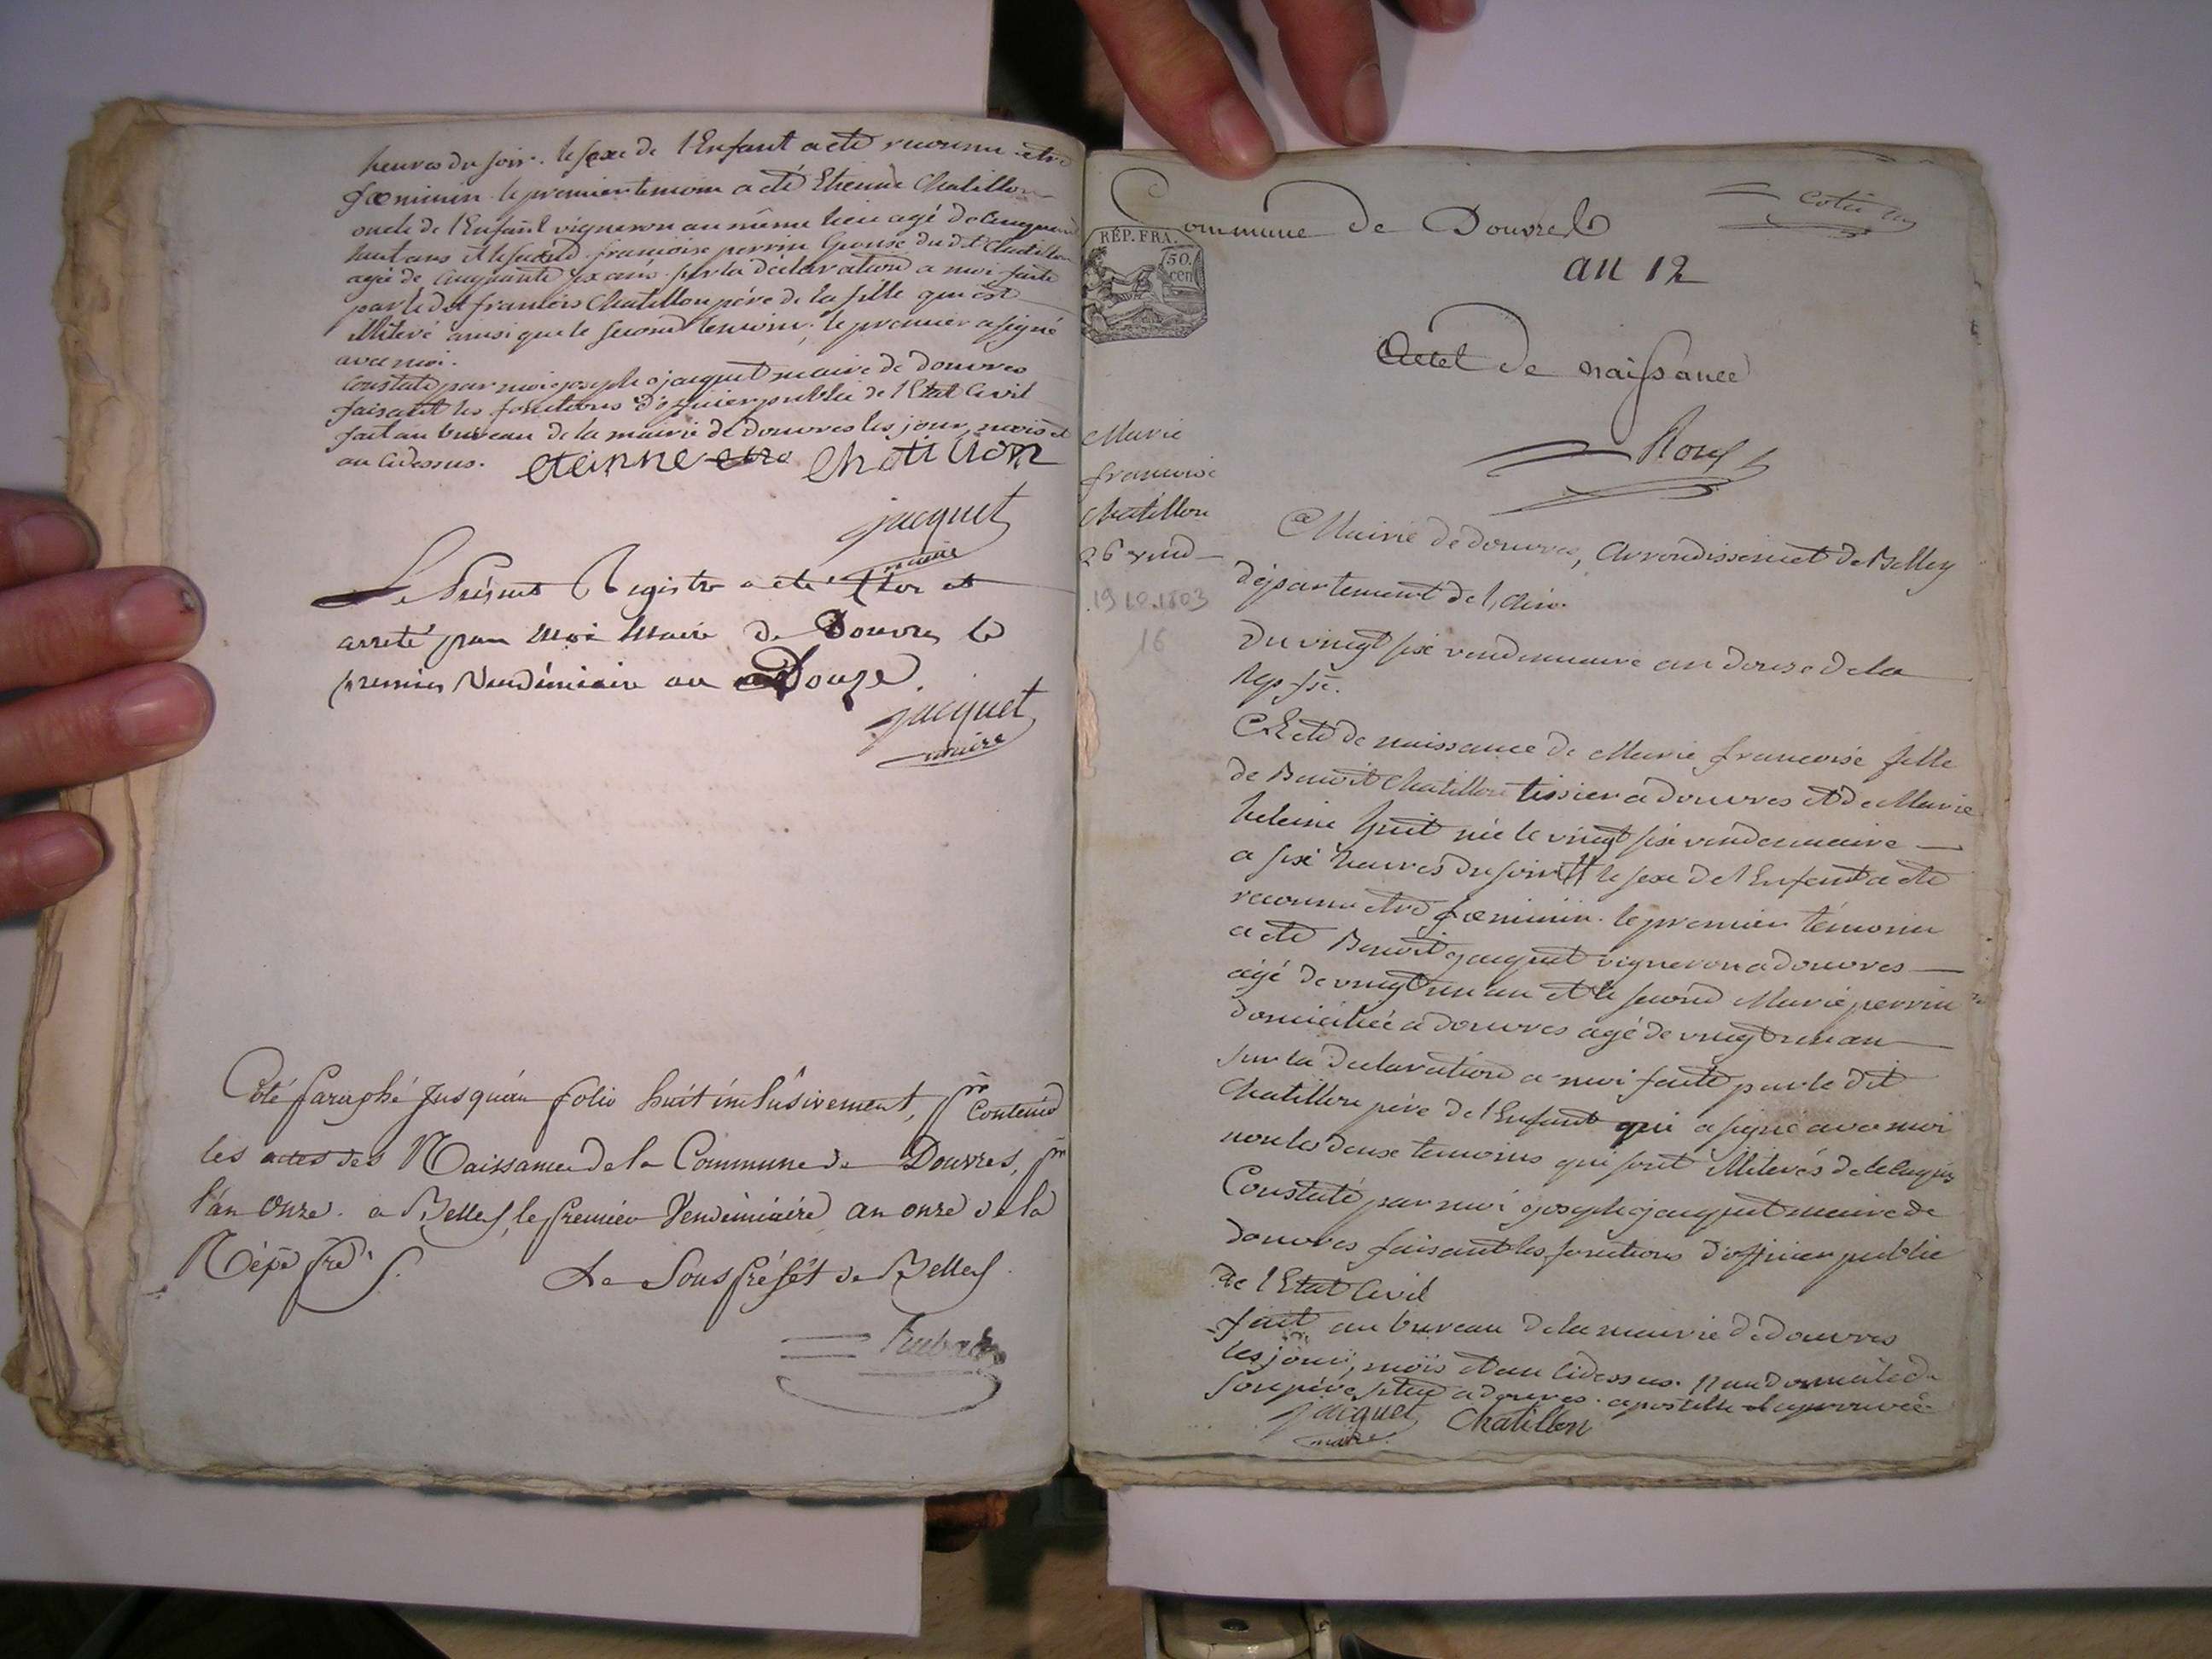 heures du soir. le sexe de l'Enfant a eté reconnu etre
fœminin. le premier temoin a eté Etienne Chatillon
oncle de l'Enfant vigneron au même lieu agé de cinquante
huit ans et le second francoise perrin Epouse du dit Chatillon
agée de cinquante six ans. sur la déclaration a moi faite
par le dit francois Chatillon pére de la fille qui est
illiteré ainsi que le second temoin; le premier a signé
avec moi.
Constaté par moi joseph jacquet maire de douvres
faisant les fonctions d'officier public de l'Etat Civil
fait au bureau de la mairie de douvres les jour, mois et
an cidessus. etienne chatillon
jacquet
maire
Le Présent Registre a eté Clos et
arreté par moi Maire de Douvres le
premier Vendémiaire an Douze.
jacquet
maire
Coté paraphé jusqu'au folio huit inclusivement, pr contenir
les actes des Naissance de la Commune de Douvres, pr
l'an Onze. a Belley, le premier Vendémiaire an onze de la
Répe fre.
Le Sous préfét de Belley.
Commune de Douvres
RÉP. FRA.
50.
cen
an 12
Actes de naissance
Roux
Marie
francoise
chatillon
26 vend
19.10.1803
16
Mairie de douvres, Arrondissement de Belley
département de l'Ain.
Du vingt six vendemiaire an douze de la
Rep. fse.
Acte de naissance de Marie francoise fille
de Benoit Chatillon tissier a douvres et de Marie
heleine née le vingt six vendemiaire
a six heures du soir # le sexe de l'Enfant a eté
reconnu etre fœminin. le premier témoin
a eté Benoit jacquet vigneron a douvres
agé de vingt un an et le second Marie perrin
domiciliée a douvres agé de vingt un an
sur la declaration a moi faite par le dit
Chatillon pére de l'Enfant qui a signé avec moi
non les deux temoins qui sont illiterés de ce enquis
Constaté par moi joseph jacquet maire de
douvres faisant les fonctions d'officier public
de l'Etat Civil
fait au bureau de la mairie de douvres
les jour, mois et an cidessus. # au domicile de
son pére situé a douvres. apostille approuvée
jacquet Chatillon
maire